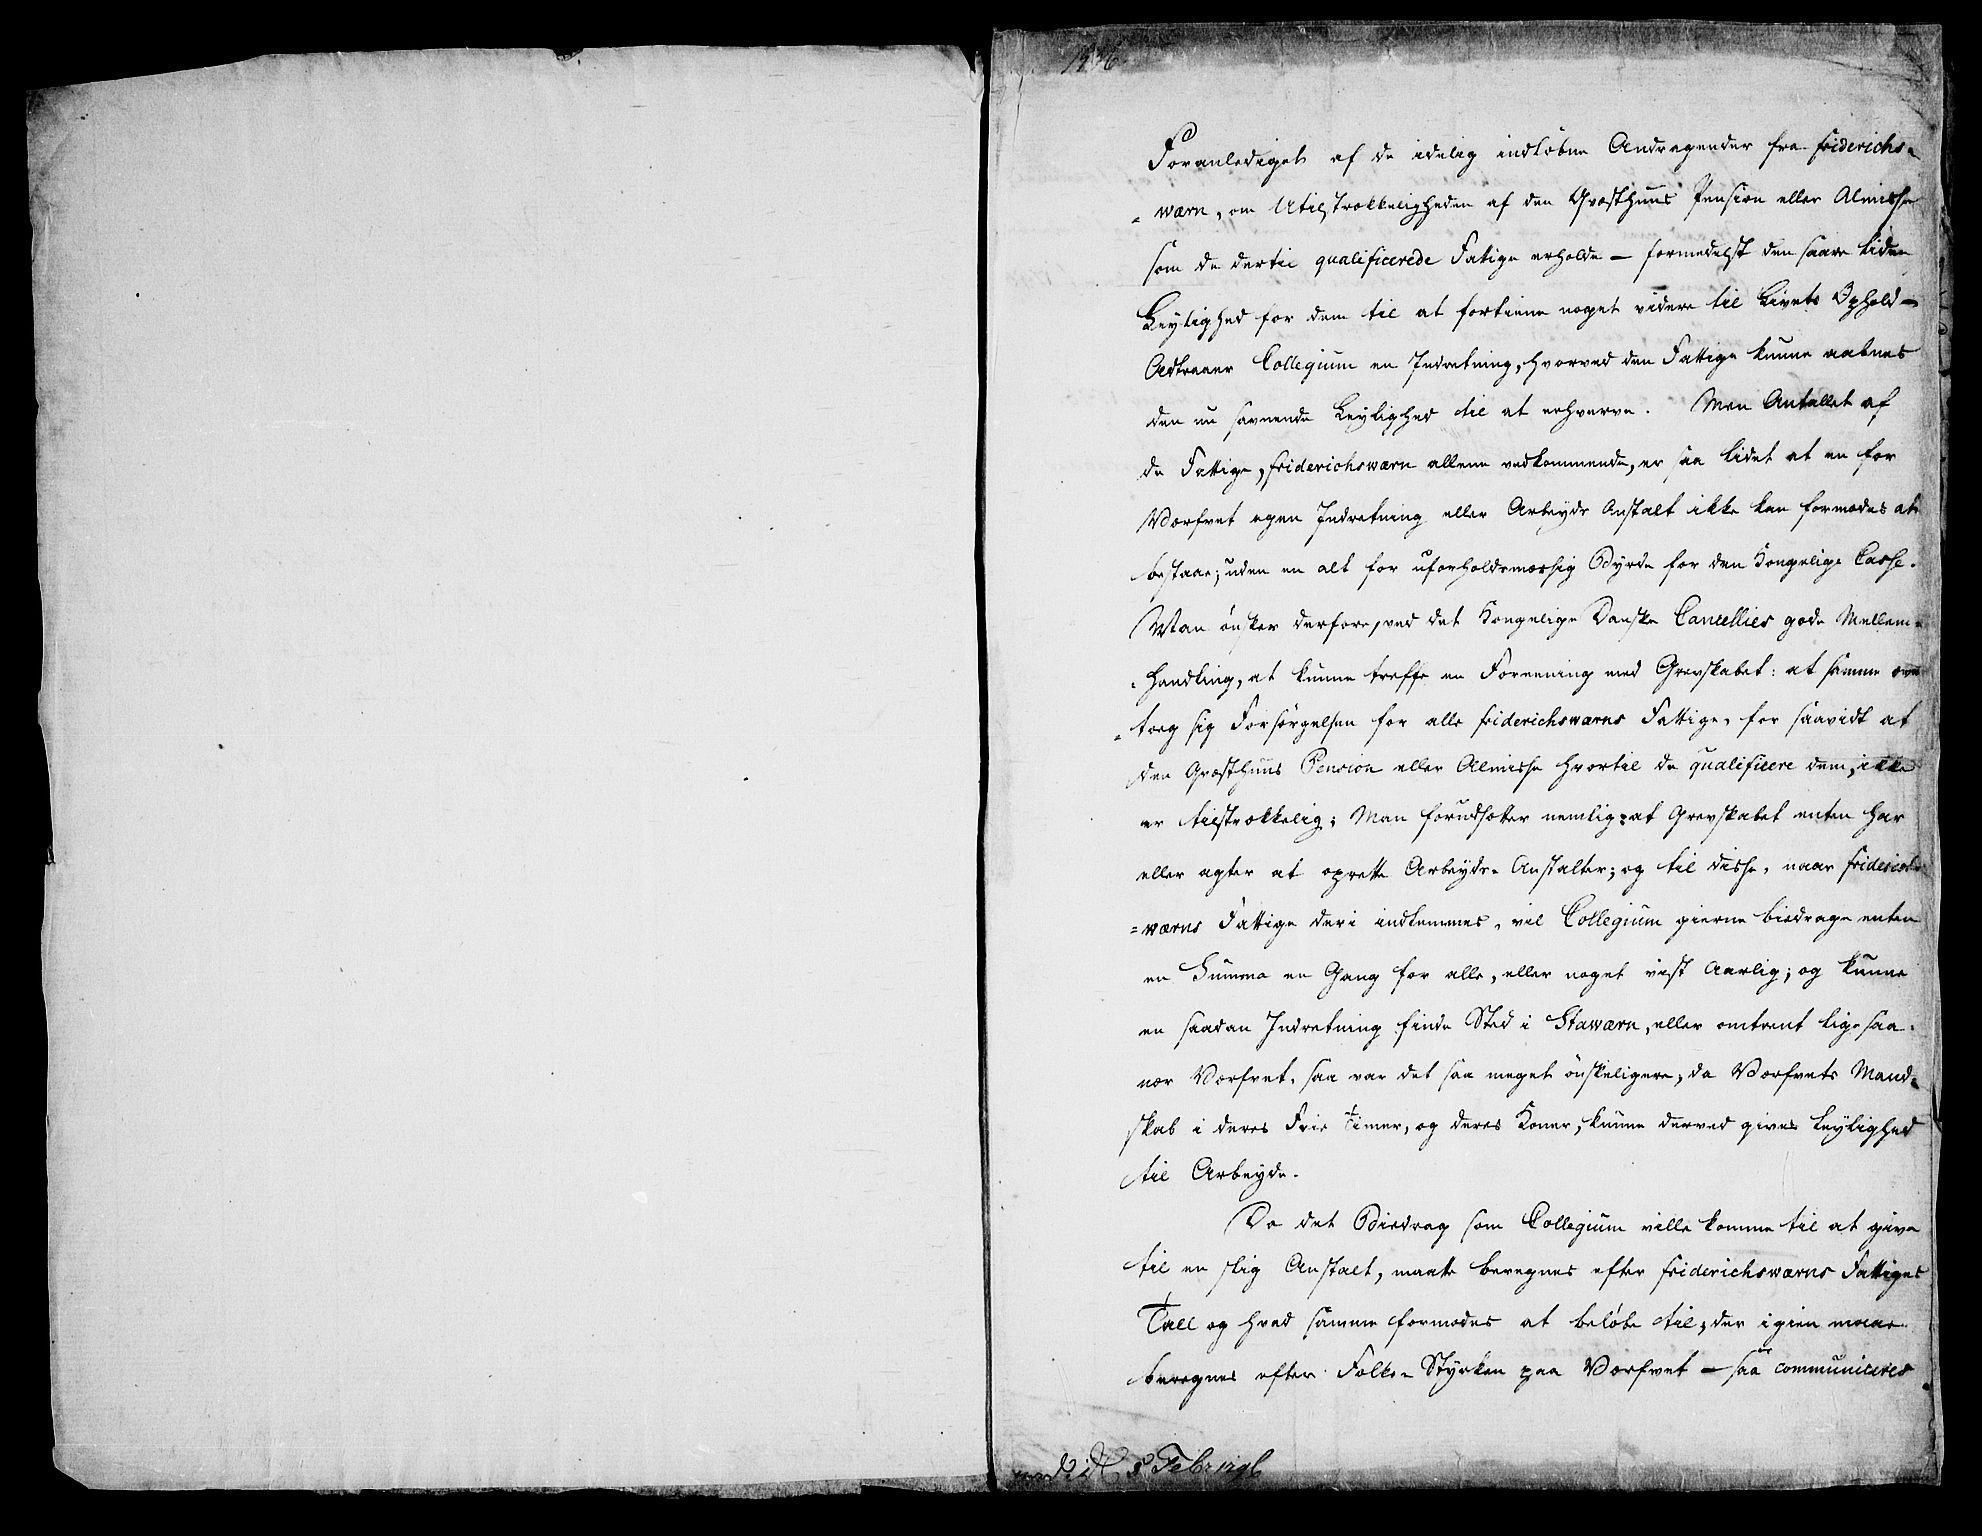 Foranlediget af de idelig indløbne Andragender fra Friderichs-
-wærn, om Utilstrækkeligheden af den Qvæsthuus Pension eller Almisse
som de dertil qualificerede Fatige erholde — formedelst den saare liden
Leylighed for dem til at fortiene noget videre til Livets Ophold —
Adtraaer Collegium en Indretning, hvorved den Fattige kunne aabnes
den nu savnende Leylighed til at erhverve. Men Antallet af
de Fattige, Friderichswærn allene vedkommende, er saa lidet at en for
Værfvet egen Indretning eller Arbeyds Anstalt ikke kan formodes at
bestaae; uden en alt for uforholdsmæssig Byrde for den Kongelige Casse.
Man ønsker derfore, ved det Kongelige Danske Cancellies gode Mellem-
-handling, at kunne treffe en Foreening med Grevskabet: at samme over
-toeg sig Forsørgelsen for alle Friderichswærns Fattige, for saavidt at
den Qvæsthuus Pension eller Almisse hvortil de qualificere dem, ikke
er tilstrækkelig; Man forudsætter nemlig: at Grevskabet enten har
eller agter at oprette Arbeyds-Anstalter; og til disse, naar Friderichs
=wærns Fattige deri indlemmes, vil Collegium gierne biedrage enten
en Summa en Gang for alle, eller noget vist Aarlig; og kunne
en saadan Indretning finde Sted i Stawærn, eller omtrent lige saa
nær Værfvet, saa var det saa meget ønskeligere, da Værfvets Mand-
skab i deres Frie Timer, og deres Koner, kunne derved gives Leylighed
til Arbeyde.
Da det Biedrag som Collegium ville komme til at give
til en slig Anstalt, maatte beregnes efter Friderichswærns Fattiges
Tall og hvad samme formodes at beløbe til, der igien maae
beregnes efter Folke-Styrken paa Værfvet — saa communiceres
5 Febr 1796